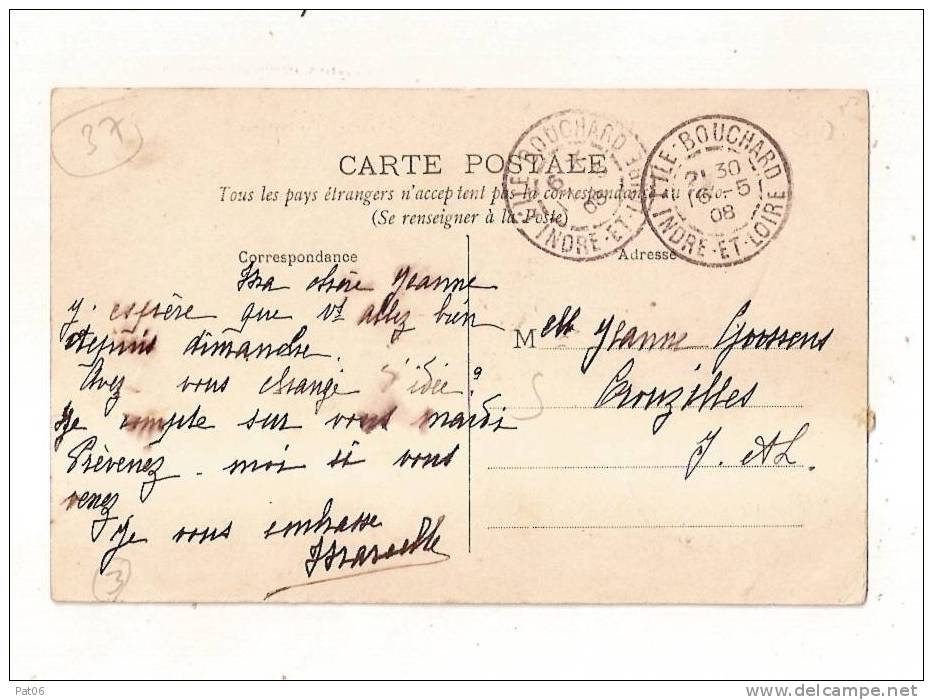 37
CARTE POSTALE
Tous les pays étrangers n'acceptent pas la correspondance au recto.
(Se renseigner à la Poste)
L'ILE-BOUCHARD
6 -5
08
INDRE-ET-LOIRE
L'ILE-BOUCHARD
30
6 -5
08
INDRE-ET-LOIRE
Correspondance
Ma chère Jeanne
J'espère que vs allez bien
depuis dimanche.
Avez vous changé d'idée?
Je compte sur vous mardi
Prévenez-moi si vous
venez
Je vous embrasse
Marcelle
3
Adresse
Melle Jeanne Goossens
Crouzilles
I. et L.
Pat06
www.delcampe.net